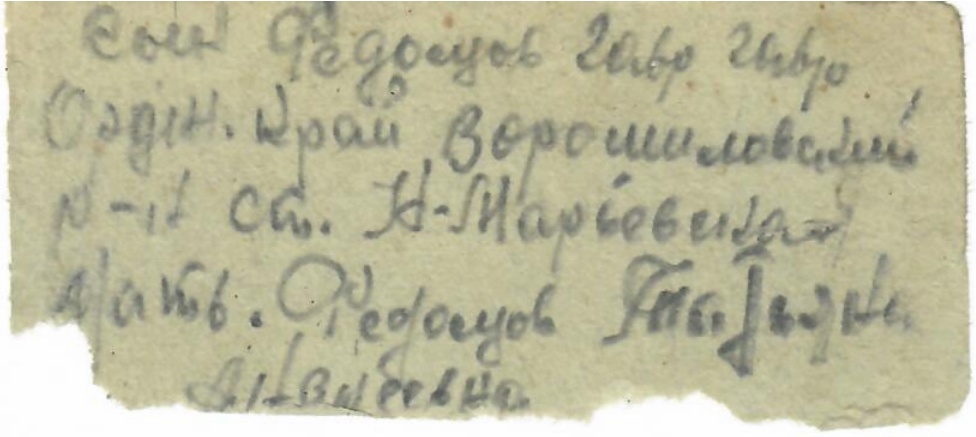 сын Федоцов Гавр Гавр
Ордж. край Ворошиловский
р-н ст. Н-Марьевская
мать. Федоцов Татьяна